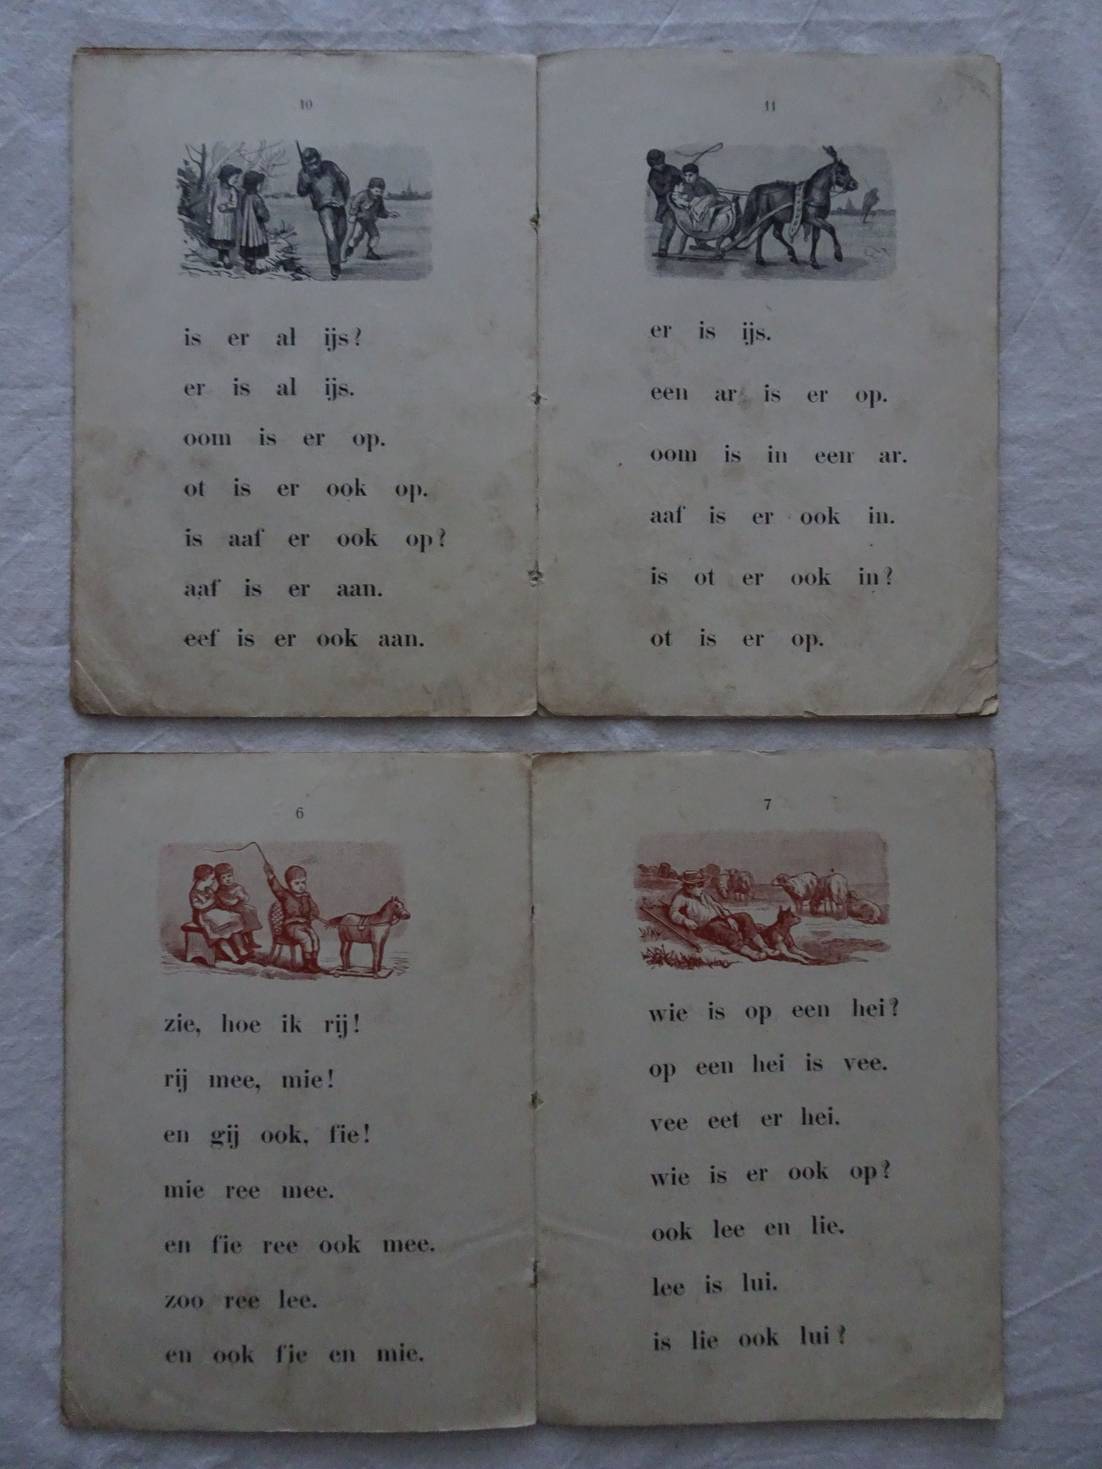 10
is er al ijs?
er is al ijs.
oom is er op.
ot is er ook op.
is aaf er ook op?
aaf is er aan.
eef is er ook aan.
11
er is ijs.
een ar is er op.
oom is in een ar.
aaf is er ook in.
is ot er ook in?
ot is er op.
6
zie, hoe ik rij!
rij mee, mie!
en gij ook, fie!
mie ree mee.
en fie ree ook mee.
zoo ree lee.
en ook fie en mie.
7
wie is op een hei?
op een hei is vee.
vee eet er hei.
wie is er ook op?
ook lee en lie.
lee is lui.
is lie ook lui?